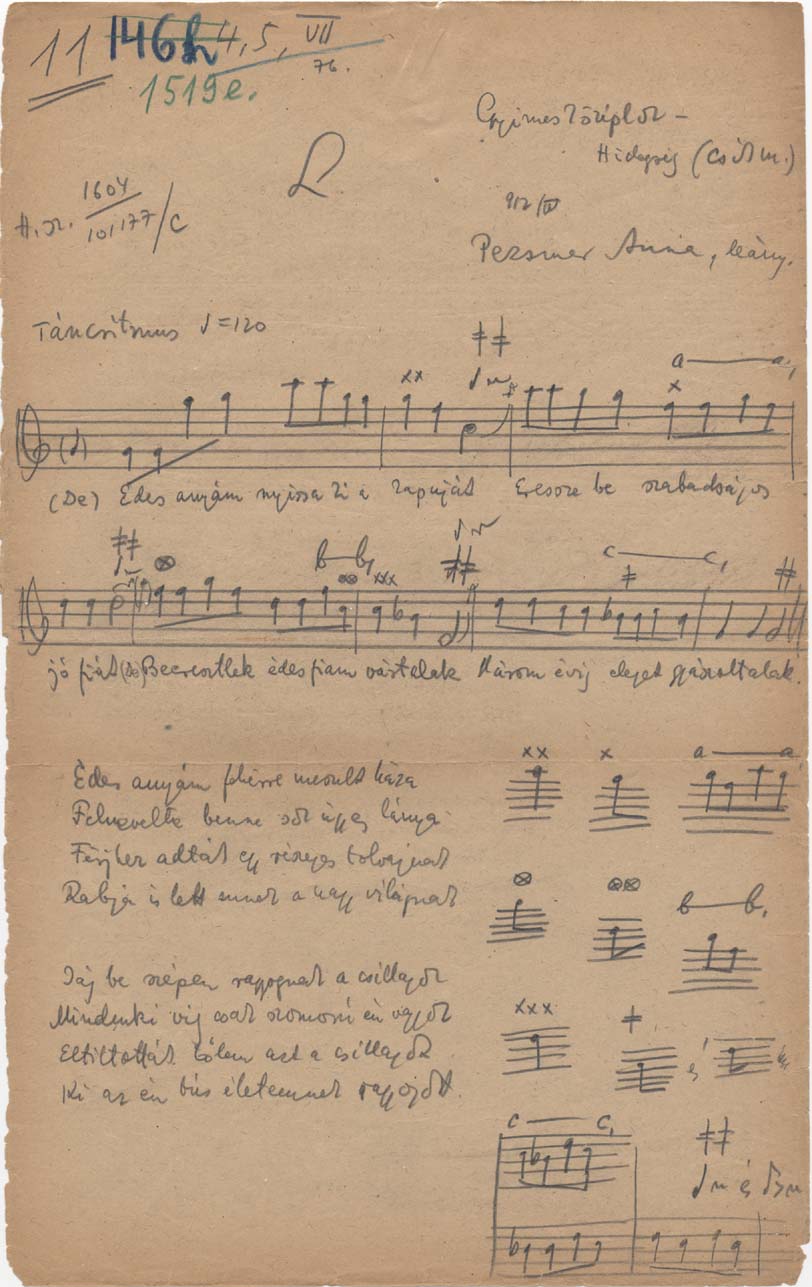 11 146h 4, 5, VII
76.
1519e.
Gyimesközéplok –
Hidegség (Csíkm.)
L
H. sz. 1604
101177/c
912/IV
Pezsmer Anna, leány.
Táncritmus ♩=120
a — a,
(De) Édes anyám nyissa ki a kapuját Eressze be szabadságos
b — b,
c — c,
jó fiát (De) Beeresztlek édes fiam vártalak Három évig eleget gyászoltalak.
xx x a — a,
Édes anyám fehérre meszelt háza
Felnevelte benne sok
lánya
Férjhez adták egy részeges tolvajnak
Rabja is lett ennek a nagy világnak
b — b,
Jaj be szépen ragyognak a csillagok
Mindenki víg csak szomorú én vagyok
xxx
Eltiltották tőlem azt a csillagok
és
Ki az én bús életemnek ragyogott.
c — c,
és